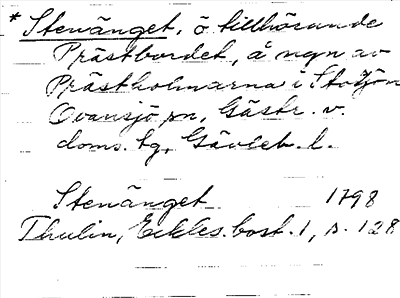 * Stenänget, ö. tillhörande
Prästbordet, å ngn av
Prästholmarna i Storsjön
Ovansjö sn, Gästr. v.
doms. tg, Gävleb. l.
Stenänget 1798
Thulin, Eckles. bost. 1, s. 128